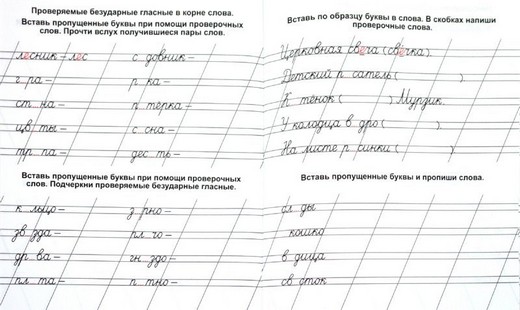 Проверяемые безударные гласные в корне слова.
Вставь пропущенные буквы при помощи проверочных
слов. Прочти вслух получившиеся пары слов.
лесник – лес с довник –
г ра – р ка –
ст на – п тёрка –
цв ты – с сна –
тр па – дес ть –
Вставь пропущенные буквы при помощи проверочных
слов. Подчеркни проверяемые безударные гласные.
к льцо – з рно –
зв зда – пл го –
др ва – гн здо –
пл та – п тно –
Вставь по образцу буквы в слова. В скобках напиши
проверочные слова.
Церковная свеча (свечка).
Детский п сатель ( ).
К тёнок ( ) Мурдик.
У колодца в дро ( ).
На листе р синки ( ).
Вставь пропущенные буквы и пропиши слова.
ды
кошко
в дица
св сток